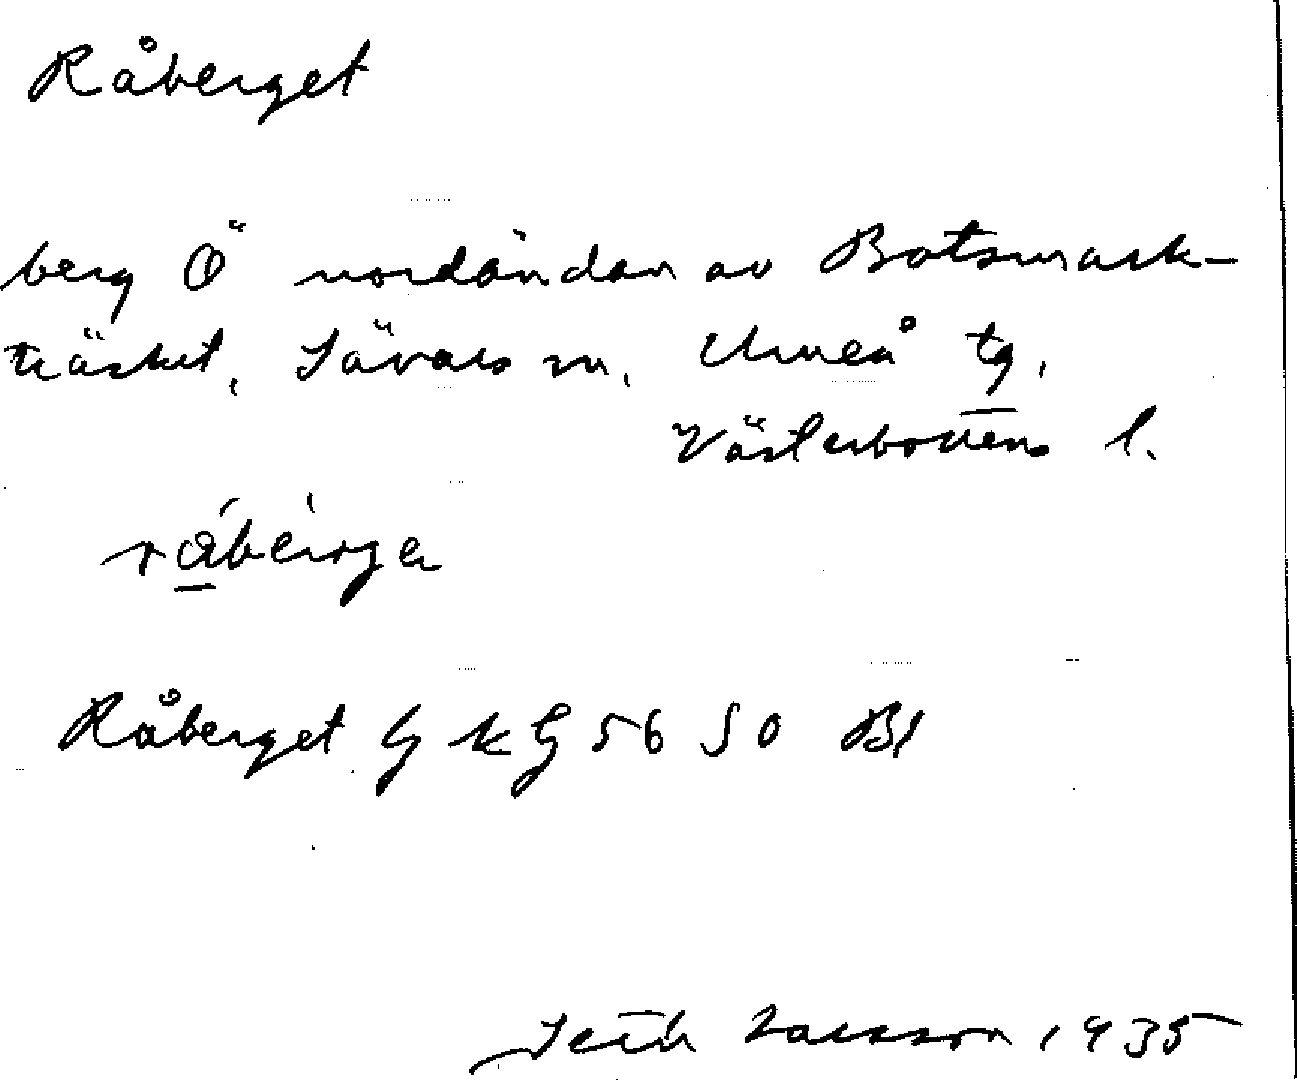 Råberget
berg Ö nordändan av Botsmark-
träsket, Sävars sn, Umeå tg,
Västerbottens l.
råbérga
Råberget G k G 56 50 Bl
Larsson 1935